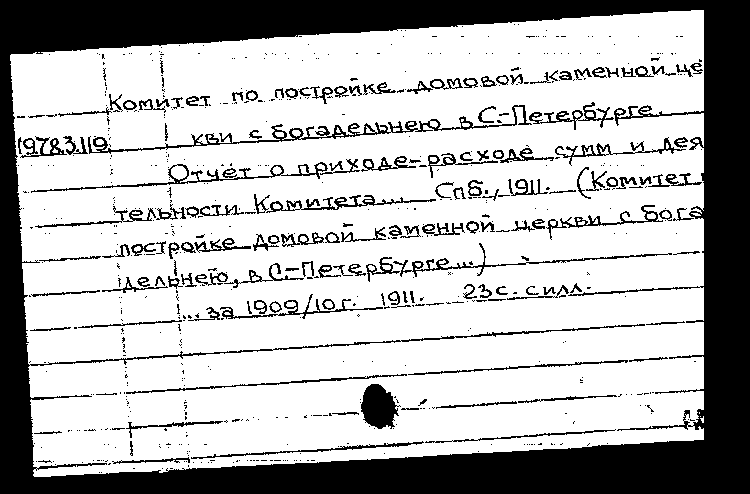 Комитет по постройке домовой каменной це
1978.3.119 кви с богадельнею в С.-Петербурге.
Отчёт о приходе-расходе сумм и дея
тельности Комитета... Спб., 1911. (Комитет
постройке домовой каменной церкви с бога
дельнею, в С.-Петербурге...)
...за 1909/10 г. 1911. 23 с. с илл.